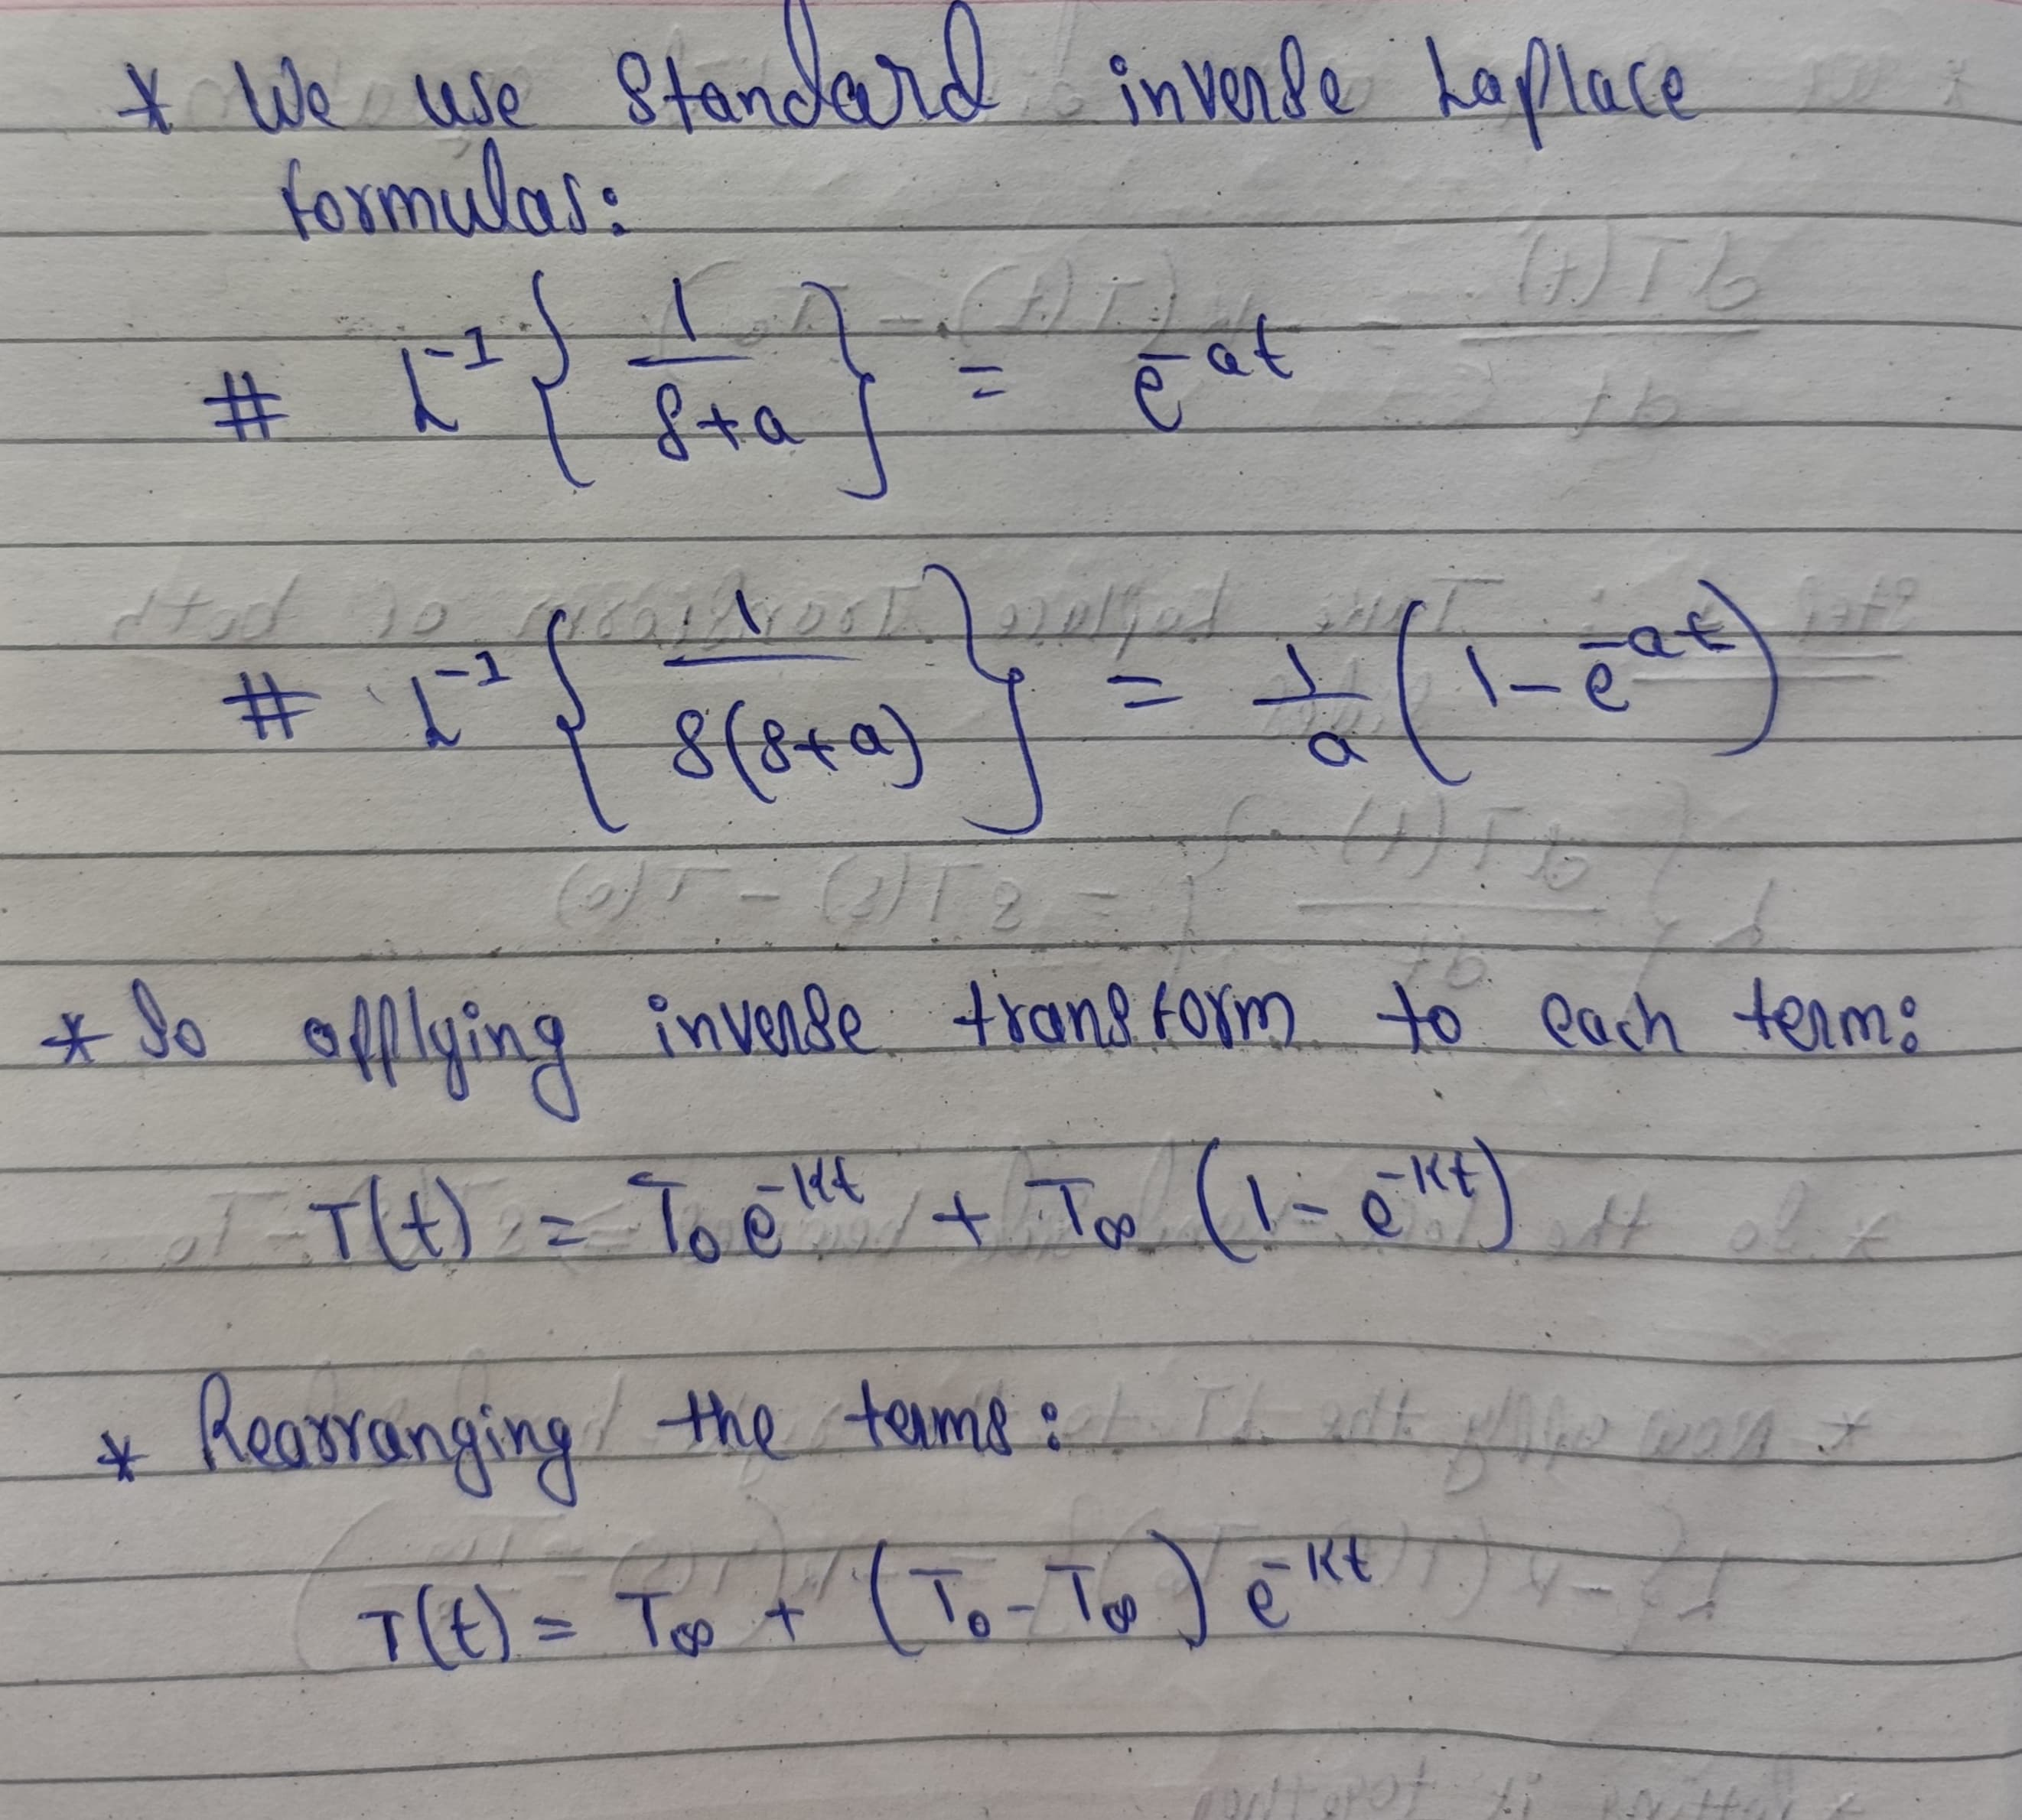 * We use standard inverse Laplace
formulas:
# L⁻¹{ 1/(s+a) } = e^-at
# L⁻¹{ 1/(s(s+a)) } = 1/a (1 - e^-at)
* So applying inverse transform to each term:
T(t) = T₀e^-kt + T∞ (1 - e^-kt)
* Rearranging the terms:
T(t) = T∞ + (T₀ - T∞) e^-kt